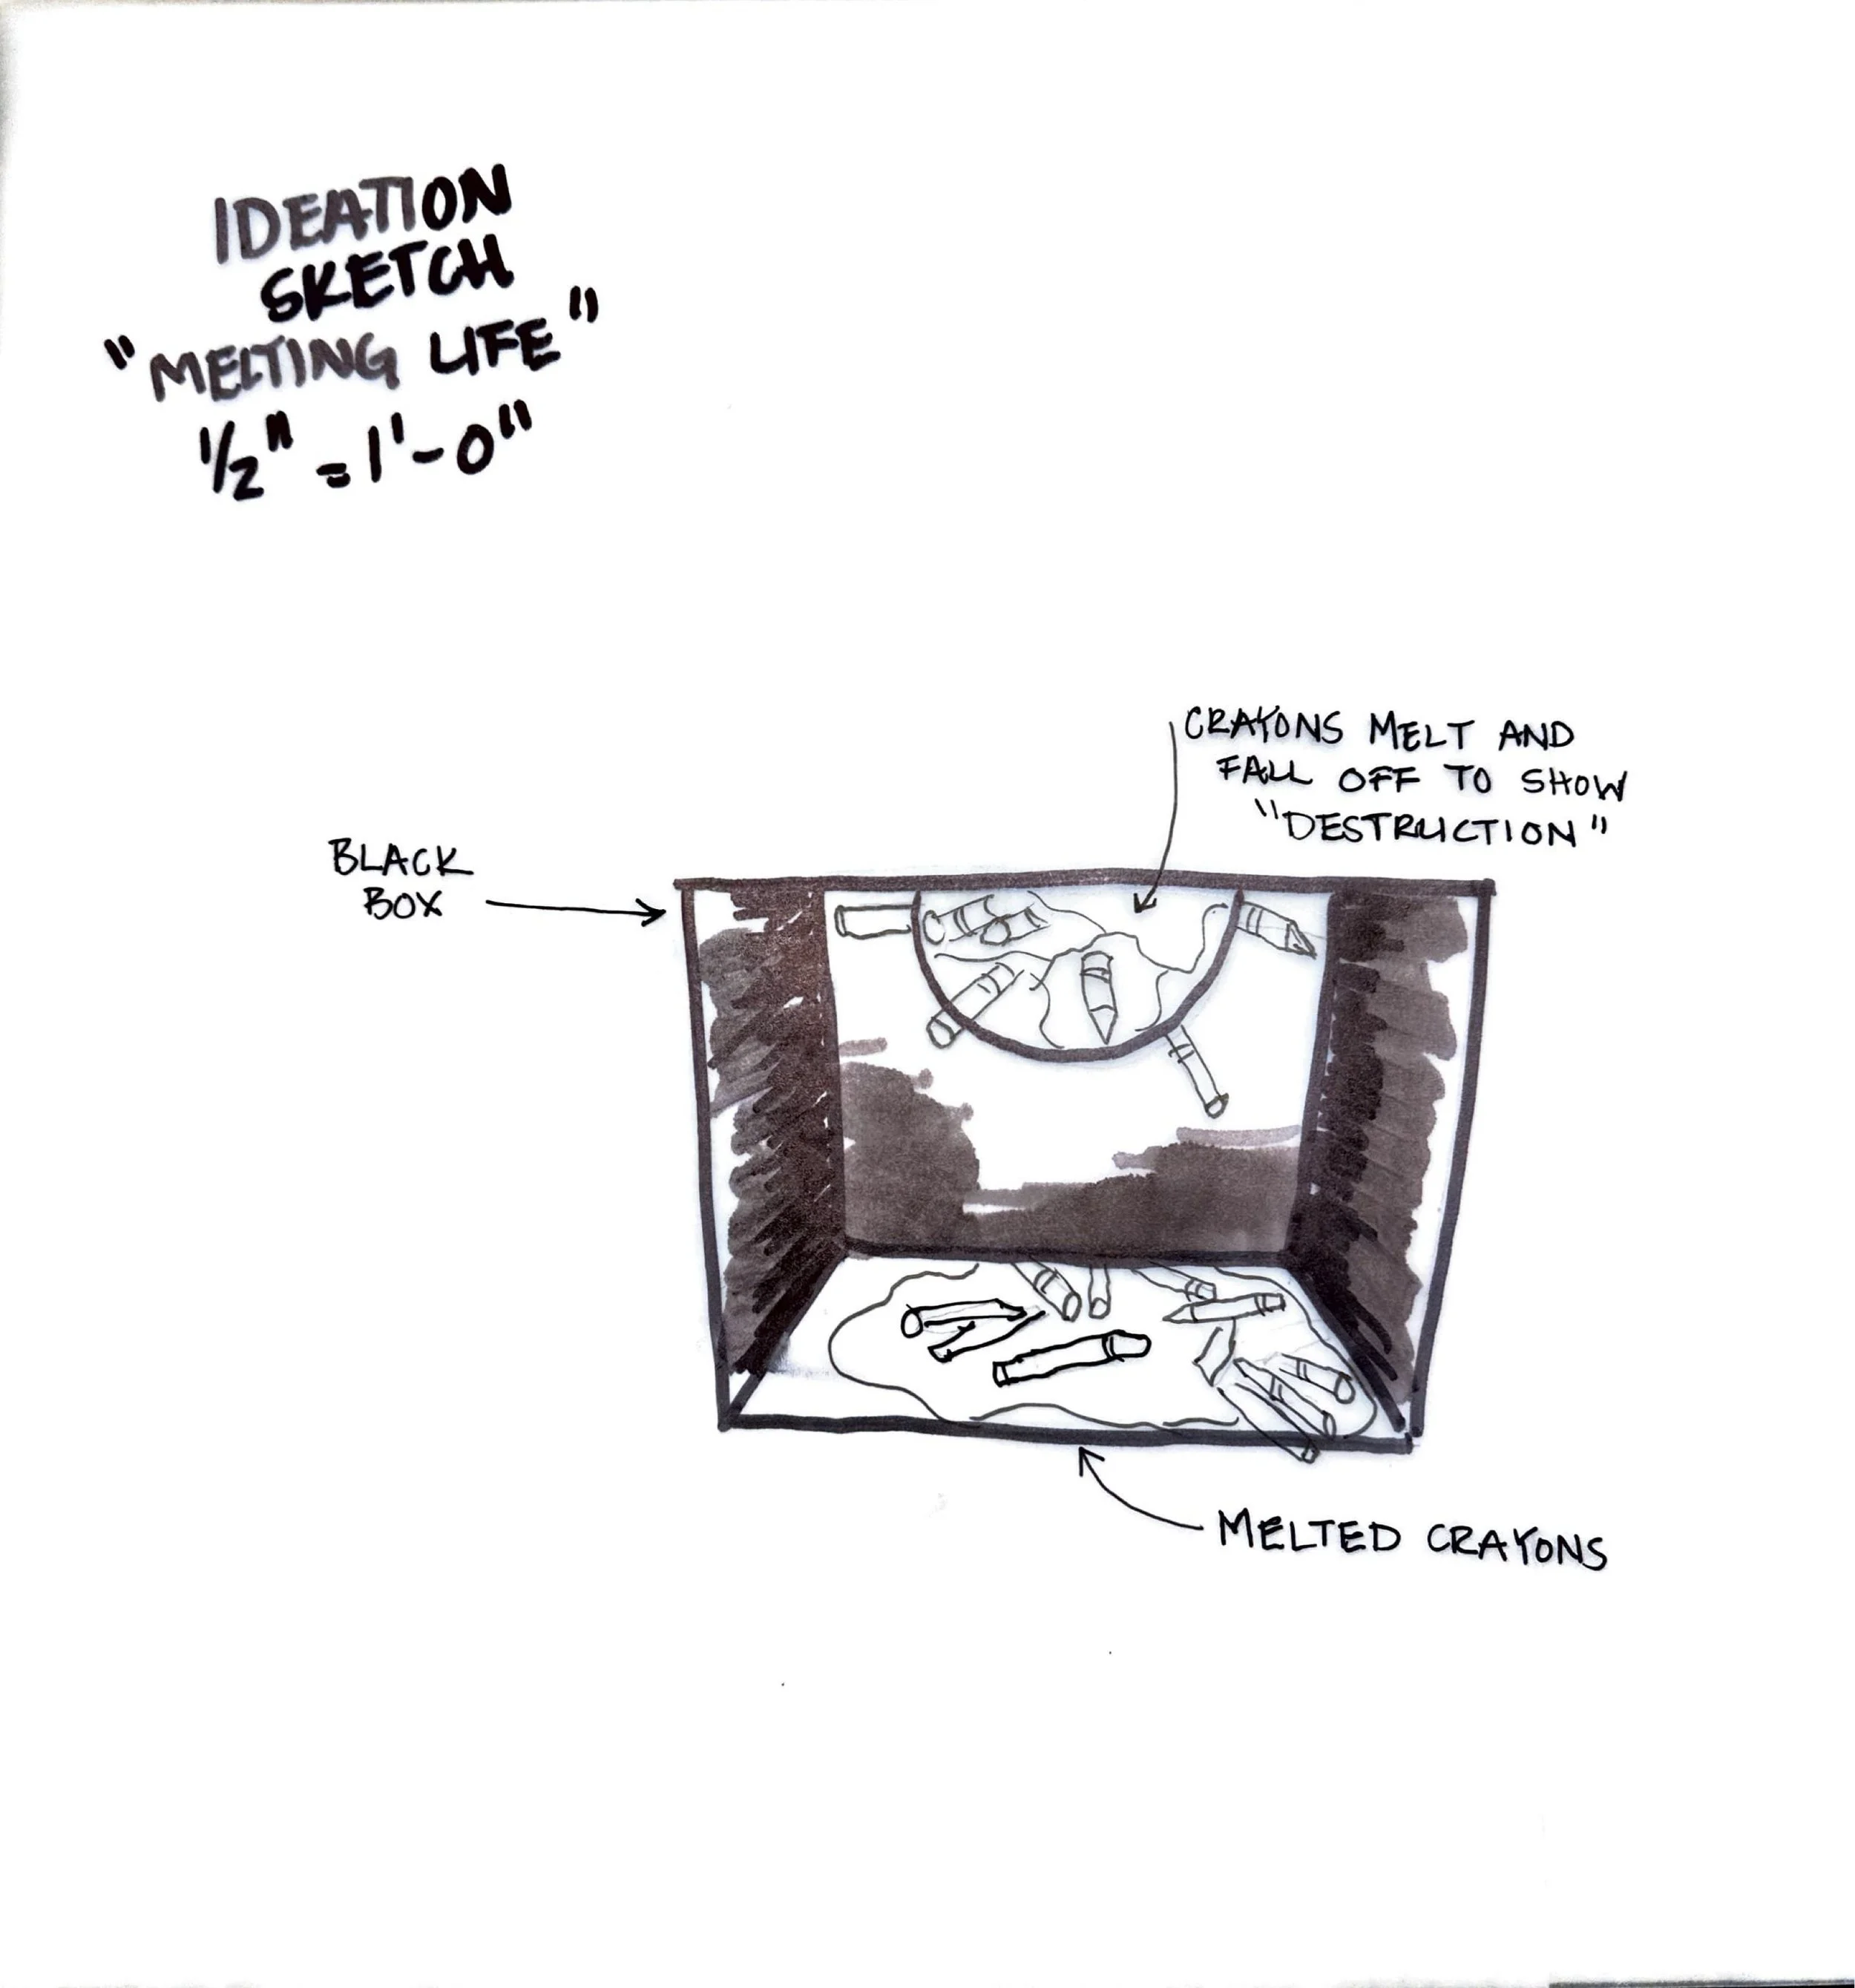 IDEATION
SKETCH
"MELTING LIFE"
1/2" = 1'-0"
CRAYONS MELT AND
FALL OFF TO SHOW
"DESTRUCTION"
BLACK
BOX
MELTED CRAYONS